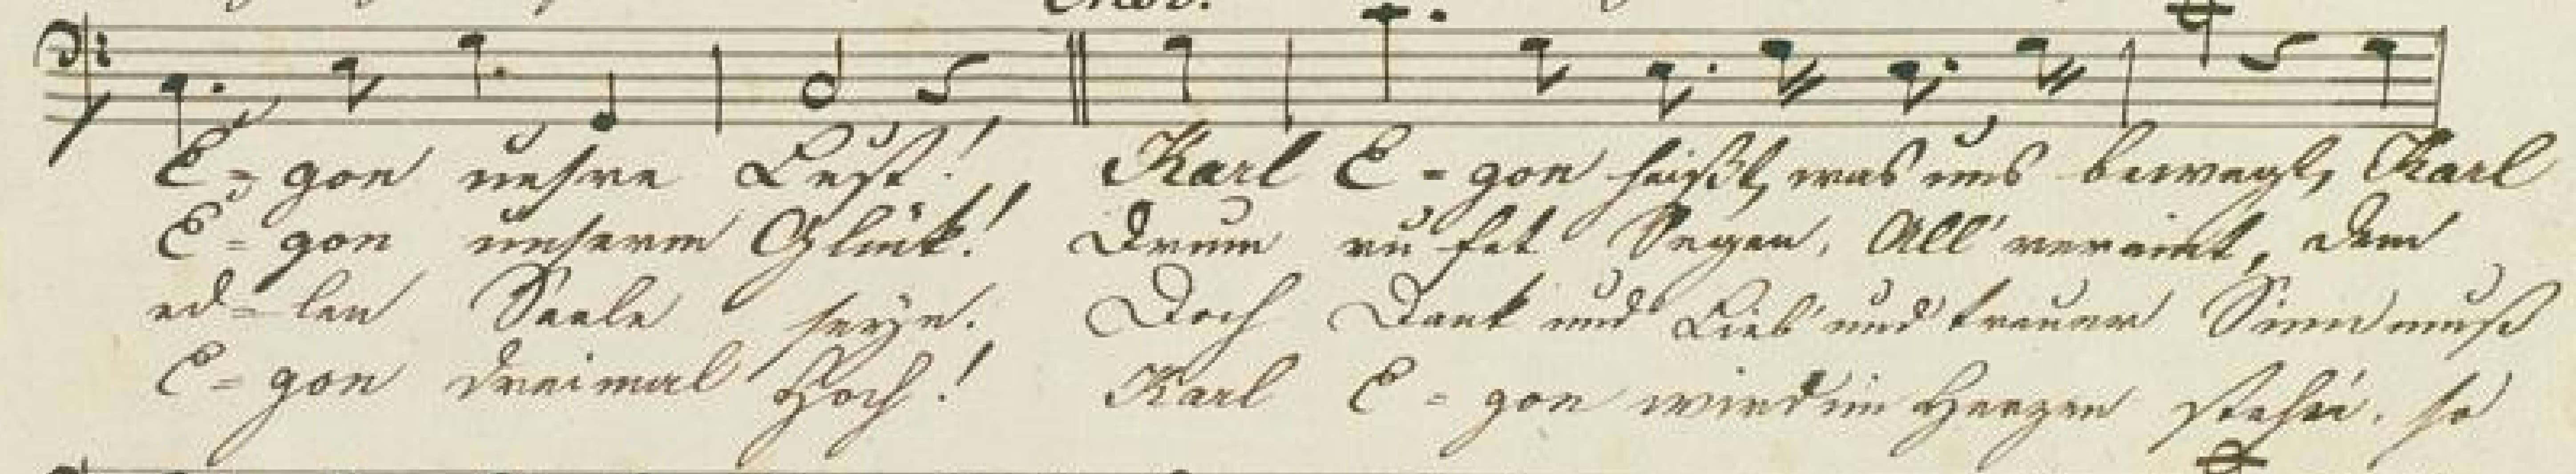 Chor.
E-gon unsre Lust! Karl E-gon heißt, was uns bewegt, Karl
E-gon unserm Glück! Drum rufet Segen, All' vereint, dem
ed-len Seele seyn. Doch Dank und Lieb' und treuer Sinn muß
E-gon dreimal Hoch! Karl E-gon wird im Herzen stehn. so